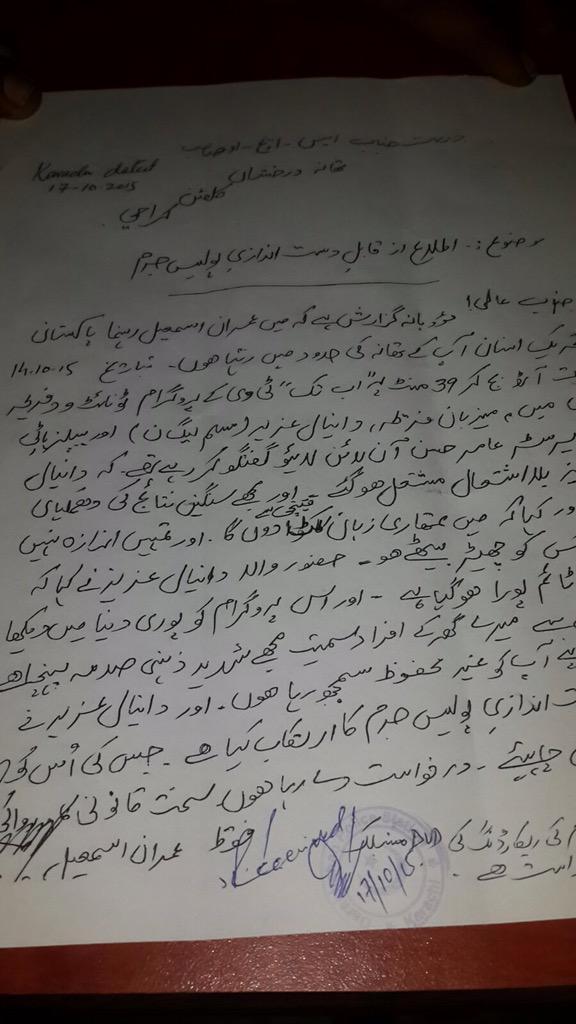 بخدمت جناب ایس - ایچ - او صاحب
تھانہ درخشاں کلفٹن کراچی
Karachi dated
17-10-2015
موضوع :- اطلاع از قابلِ دست اندازی پولیس جرم
جناب عالی!
مؤدبانہ گزارش ہے کہ میں عمران اسمعیل رہنما پاکستان
تحریک انصاف آپ کے تھانہ کی حدود میں رہتا ہوں۔ بتاریخ 14.10.15
آٹھ بج کر 39 منٹ پہ "اب تک" ٹی وی کے پروگرام ٹونائٹ ود فریحہ
میں، میزبان فریحہ، دانیال عزیز (مسلم لیگ ن) اور پیپلز پارٹی
بیرسٹر عامر حسن آن لائن لائیو گفتگو کر رہے تھے۔ کہ دانیال
بلا اشتعال مشتعل ہو گئے اور مجھے سنگین نتائج کی دھمکیاں
اور کہا کہ میں تمھاری زبان قینچی سے کٹوا دوں گا۔ اور تمہیں اندازہ نہیں
کس کو چھیڑ بیٹھے ہو۔ حضور والہ دانیال عزیز نے کہا کہ
ٹائم پورا ہو گیا ہے۔ اور اس پروگرام کو پوری دنیا میں دیکھا
میرے گھر کے افراد سمیت مجھے شدید ذہنی صدمہ پہنچا ہے
اپنے آپ کو غیر محفوظ سمجھ رہا ہوں۔ اور دانیال عزیز نے
دست اندازی پولیس جرم کا ارتکاب کیا ہے۔ جس کی اُس کو
چاہیئے۔ درخواست دے رہا ہوں سخت قانونی کارروائی
فقط عمران اسمعیل
کی ریکارڈنگ کی DVD منسلک
ہے۔
Received
17/10/15
Karachi